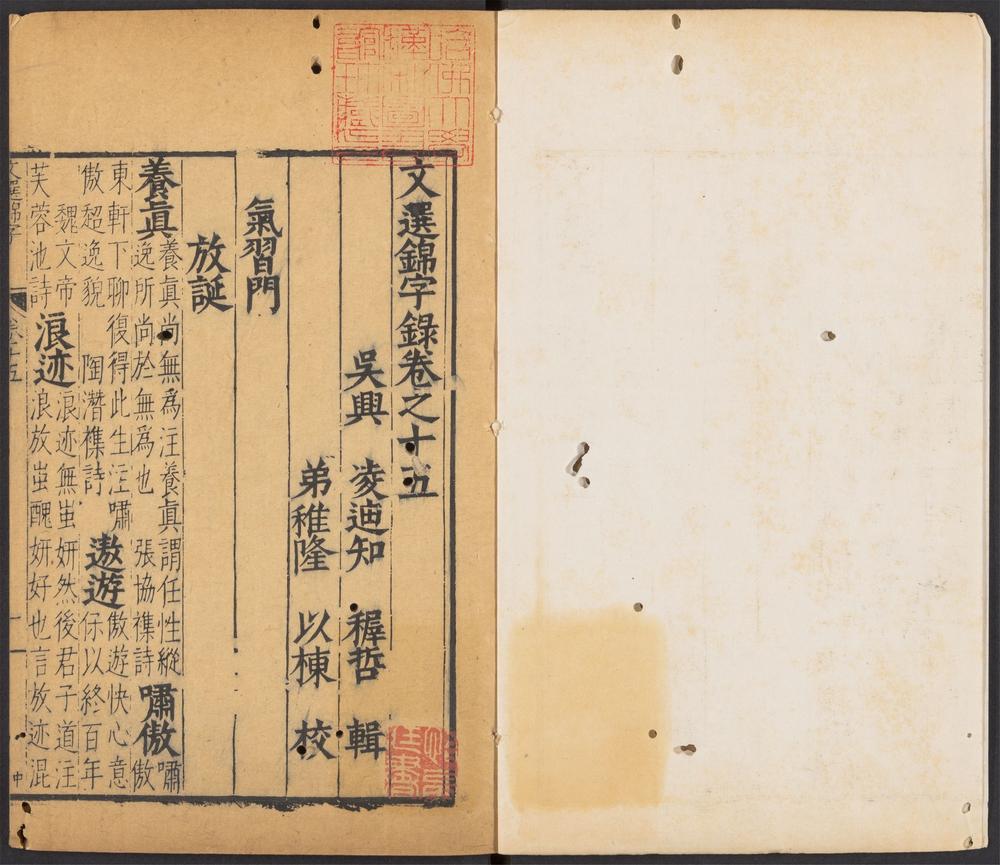 哈佛大學
漢和圖書
館珍藏印
文選錦字錄卷之十五
吳興 凌迪知 稺哲 輯
弟稚隆 以棟 校
氣習門
放誕
養眞 養眞尚無為注養眞謂任性縱
逸所尚於無為也 張協襍詩 嘯傲 嘯
傲
東軒下聊復得此生注嘯
傲超逸貌 陶潛襍詩 遨遊 傲遊快心意
保以終百年
魏文帝
芙蓉池詩 浪迹 浪迹無蚩妍然後君子道注
浪放蚩醜妍好也言放迹混
文選錦字 卷十五 一 中